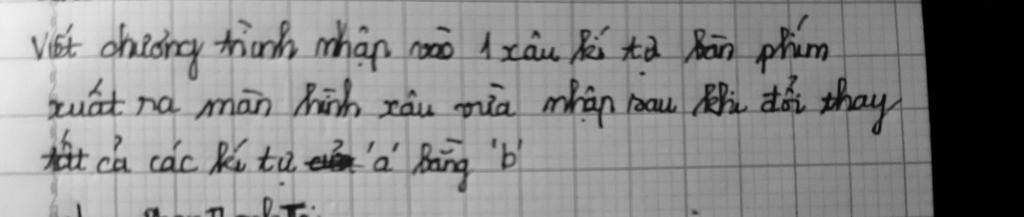 Viết chương trình nhập vào 1 xâu kí tự bàn phím
xuất ra màn hình xâu vừa nhập sau khi đổi thay
tất cả các kí tự 'a' bằng 'b'